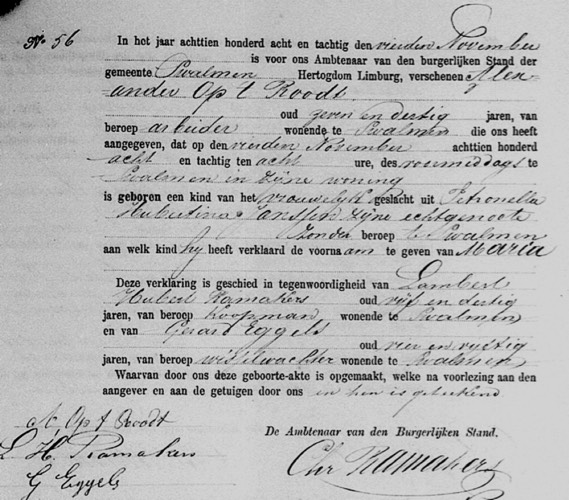 No 56
In het jaar achttien honderd acht en tachtig den vierden November
is voor ons Ambtenaar van den burgerlijken Stand der
gemeente Swalmen Hertogdom Limburg, verschenen Alex-
ander Op 't Roodt
oud zeven en dertig jaren, van
beroep arbeider wonende te Swalmen die ons heeft
aangegeven, dat op den vierden November achttien honderd
acht en tachtig ten acht ure, des voormiddags te
Swalmen in zijne woning
is geboren een kind van het vrouwelijk geslacht uit Petronella
Hubertina Janssen zijne echtgenoote
zonder beroep te Swalmen
aan welk kind hij heeft verklaard de voornaam te geven van Maria
Deze verklaring is geschied in tegenwoordigheid van Lambert
Hubert Ramakers oud vijf en dertig
jaren, van beroep koopman wonende te Swalmen
en van Gerard Eggels
oud vier en vijftig
jaren, van beroep wisselwachter wonende te Swalmen
Waarvan door ons deze geboorte-akte is opgemaakt, welke na voorlezing aan den
aangever en aan de getuigen door ons en hen is geteekend
A, Op 't Roodt
L H. Ramakers
G Eggels
De Ambtenaar van den Burgerlijken Stand.
Chr Ramakers